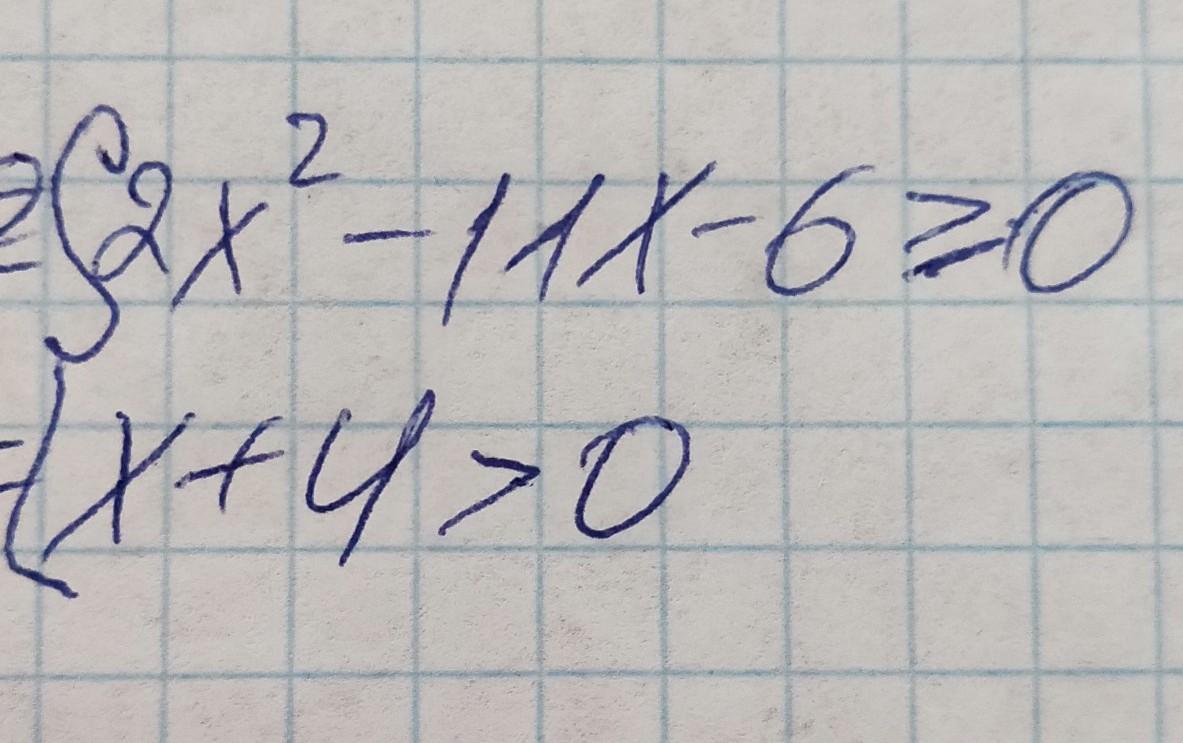 {2x² - 11x - 6 ≥ 0
{x + 4 > 0